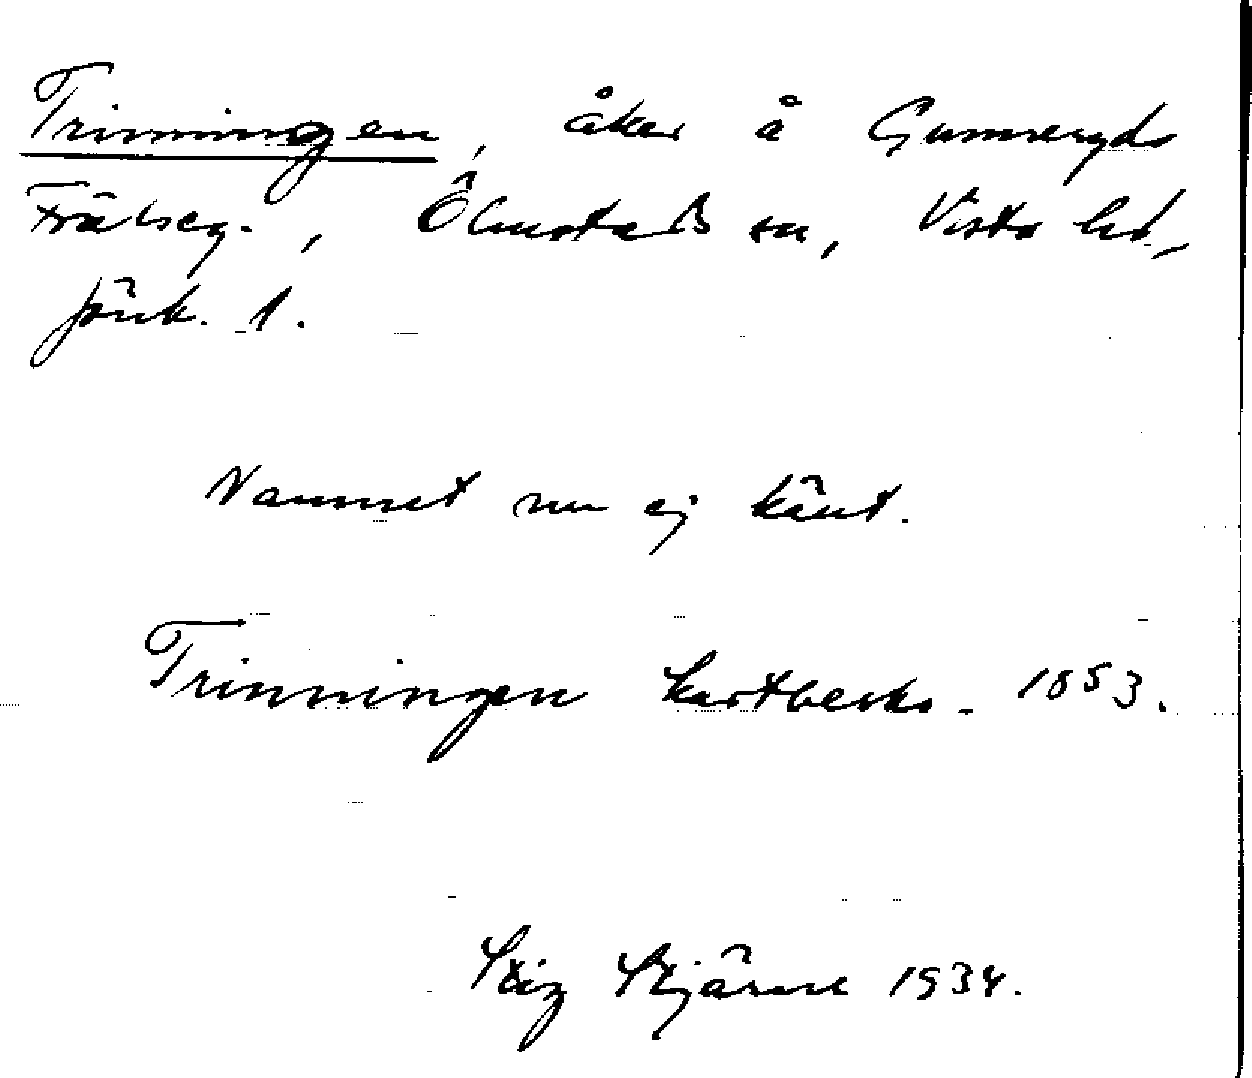 Trinningen, åker å Gunneryds
Frälseg., Ölmstads sn, Vista hd,
Jönk. l.
Namnet nu ej känt.
Trinningen kartbeskr. 1853.
Stig Stjärne 1934.